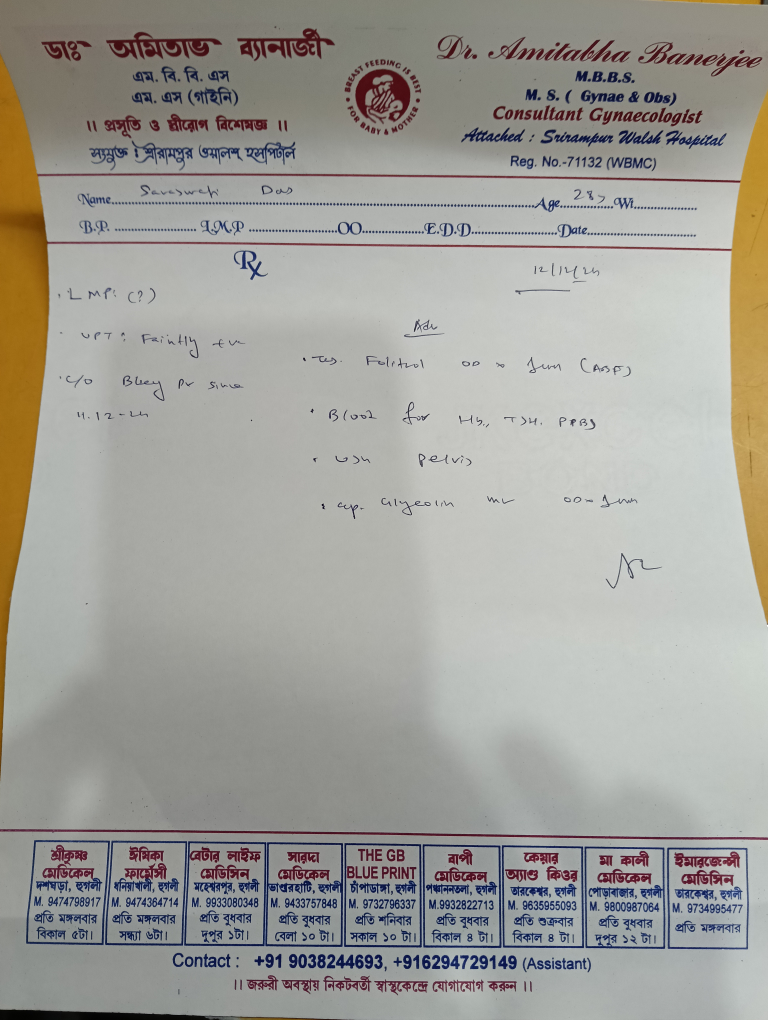 ডাঃ অমিতাভ ব্যানার্জী
এম. বি. বি. এস
এম. এস (গাইনি)
।। প্রসূতি ও স্ত্রীরোগ বিশেষজ্ঞ ।।
সংযুক্ত : শ্রীরামপুর ওয়ালশ হসপিটাল
BREAST FEEDING IS BEST
FOR BABY & MOTHER
Dr. Amitabha Banerjee
M.B.B.S.
M. S. ( Gynae & Obs)
Consultant Gynaecologist
Attached : Srirampur Walsh Hospital
Reg. No.-71132 (WBMC)
Name Saraswati Das Age 28y Wt
B.P. L.M.P OO E.D.D Date
Rx
12/12/24
LMP: (?)
UPT: Faintly +ve
c/o Bleeding PV since
11.12-24
Adv
Folitrol OO x (ABF)
Blood for Hb, TSH. PPBS
USG Pelvis
cap. OO x
শ্রীকৃষ্ণ মেডিকেল
দশঘড়া, হুগলী
M. 9474798917
প্রতি মঙ্গলবার
বিকাল ৫টা।
ঈষিকা ফার্মেসী
ধনিয়াখালী, হুগলী
M. 9474364714
প্রতি মঙ্গলবার
সন্ধ্যা ৬টা।
বেটার লাইফ মেডিসিন
মহেশ্বরপুর, হুগলী
M. 9933080348
প্রতি বুধবার
দুপুর ১টা।
সারদা মেডিকেল
ভাণ্ডারহাটি, হুগলী
M. 9433757848
প্রতি বুধবার
বেলা ১০ টা।
THE GB BLUE PRINT
চাঁপাডাঙ্গা, হুগলী
M. 9732796337
প্রতি শনিবার
সকাল ১০ টা।
বাপী মেডিকেল
পঞ্চাননতলা, হুগলী
M.9932822713
প্রতি বুধবার
বিকাল ৪ টা।
কেয়ার অ্যাণ্ড কিওর
তারকেশ্বর, হুগলী
M. 9635955093
প্রতি শুক্রবার
বিকাল ৪ টা।
মা কালী মেডিকেল
পোড়াবাজার, হুগলী
M. 9800987064
প্রতি বুধবার
দুপুর ১২ টা।
ইমারজেন্সী মেডিসিন
তারকেশ্বর, হুগলী
M. 9734995477
প্রতি মঙ্গলবার
Contact : +91 9038244693, +916294729149 (Assistant)
।। জরুরী অবস্থায় নিকটবর্তী স্বাস্থ্যকেন্দ্রে যোগাযোগ করুন ।।